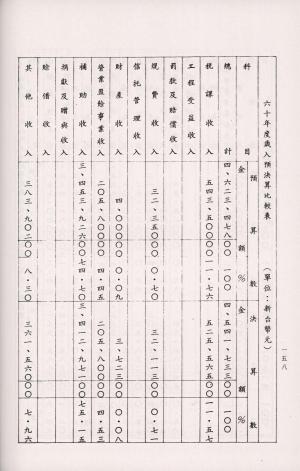 六十年度歲入預決算比較表 (單位：新台幣元)
科目 預算數 決算數
金額 % 金額 %
總計 四、六二三、四七八 一〇〇 四、五四一、七三三 一〇〇
稅課收入 五四三、五〇〇 一一・七六 五二五、五六五 一一・五七
工程受益收入
罰款及賠償收入
規費收入 三二、三五〇 〇・七〇 三二、一一三 〇・七一
信託管理收入
財產收入 四、〇〇〇 〇・〇九 〇・〇八
營業盈餘事業收入 二〇五、八〇〇 四・四五 二〇五、八〇〇 四・五三
補助收入 三、四五三、九二六 七四・七〇 三、四一二、九七一 七五・一五
捐獻及贈與收入
賒借收入
其他收入 三八三、九〇二 八・三〇 三六一、五六〇 七・九六
一五八